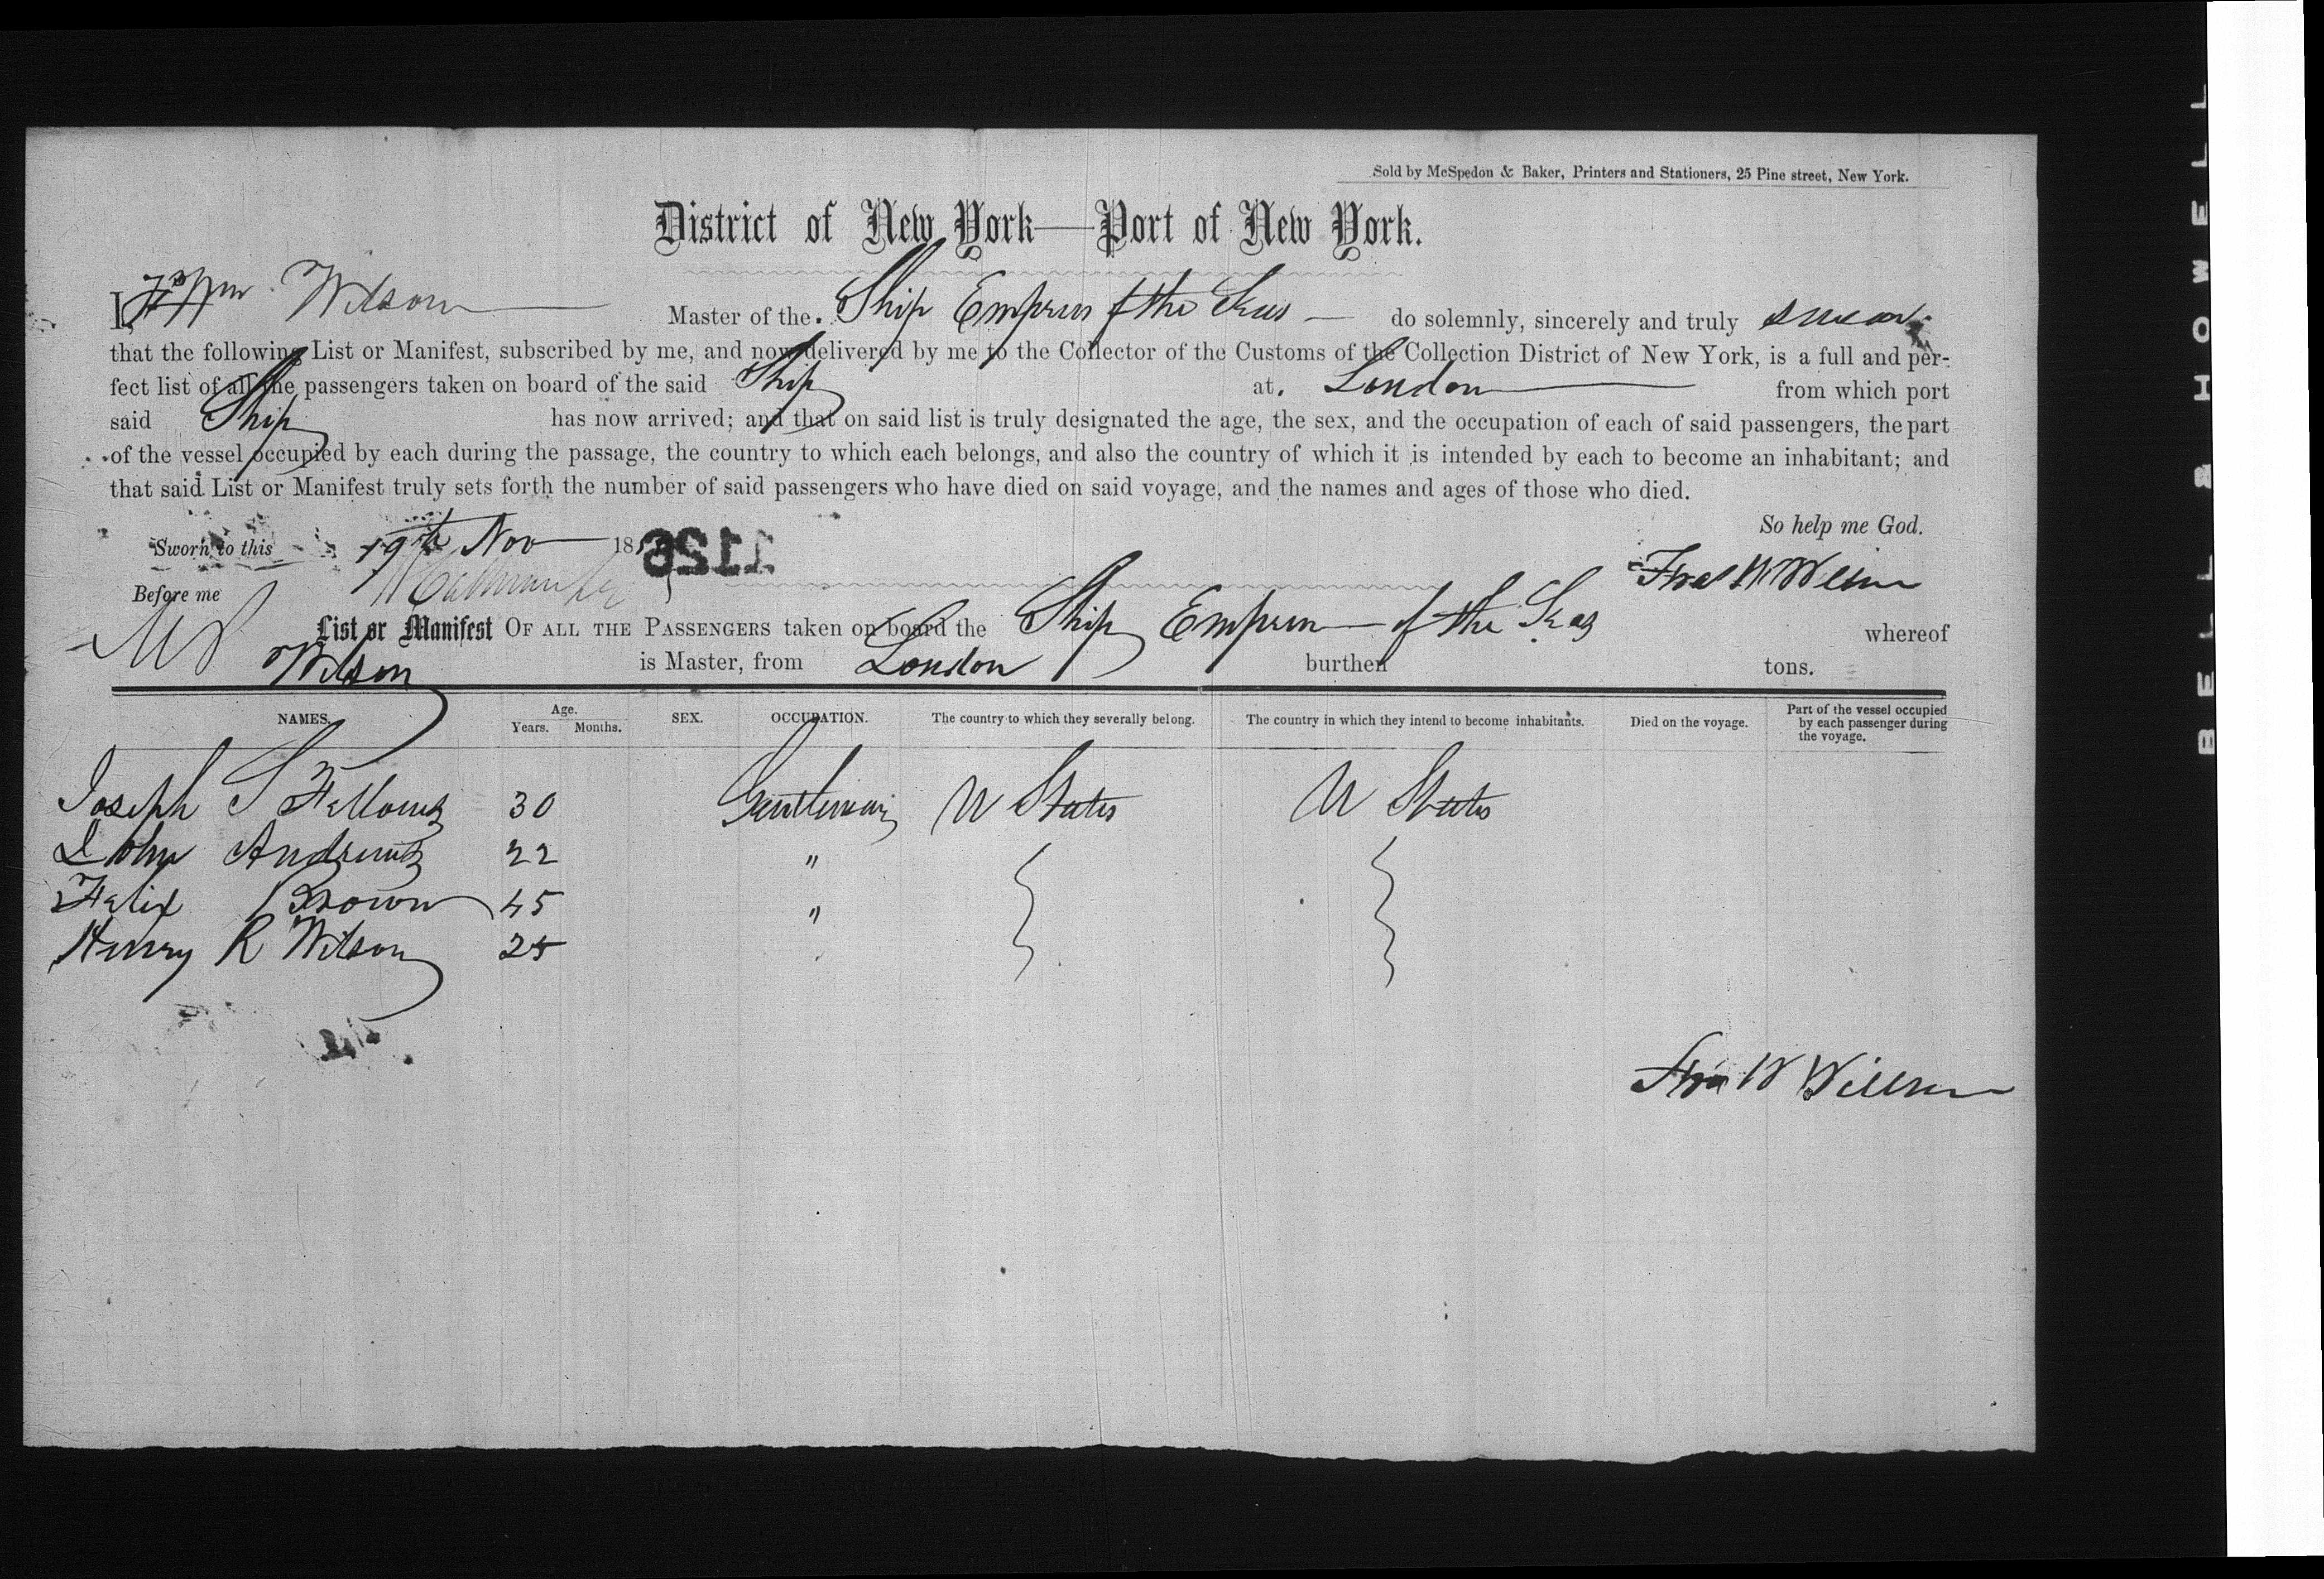 Sold by McSpedon & Baker, Printers and Stationers, 25 Pine street, New York.
District of New York—Port of New York.
I, Wilson Master of the Ship Empress of the Seas do solemnly, sincerely and truly swear
that the following List or Manifest, subscribed by me, and now delivered by me to the Collector of the Customs of the Collection District of New York, is a full and per-
fect list of all the passengers taken on board of the said Ship at London from which port
said Ship has now arrived; and that on said list is truly designated the age, the sex, and the occupation of each of said passengers, the part
of the vessel occupied by each during the passage, the country to which each belongs, and also the country of which it is intended by each to become an inhabitant; and
that said List or Manifest truly sets forth the number of said passengers who have died on said voyage, and the names and ages of those who died.
So help me God.
Sworn to this 19th Nov 18
1126
Before me
List or Manifest OF ALL THE PASSENGERS taken on board the Ship Empress of the Seas whereof
Wilson is Master, from London burthen tons.
NAMES. Age. Years. Months. SEX. OCCUPATION. The country to which they severally belong. The country in which they intend to become inhabitants. Died on the voyage. Part of the vessel occupied by each passenger during the voyage.
Joseph S Fellows 30 Gentleman U States U States
John Andrews 22 "
Felix Brown 45 "
Henry R Wilson 25
W Wilson
BELL & HOWELL